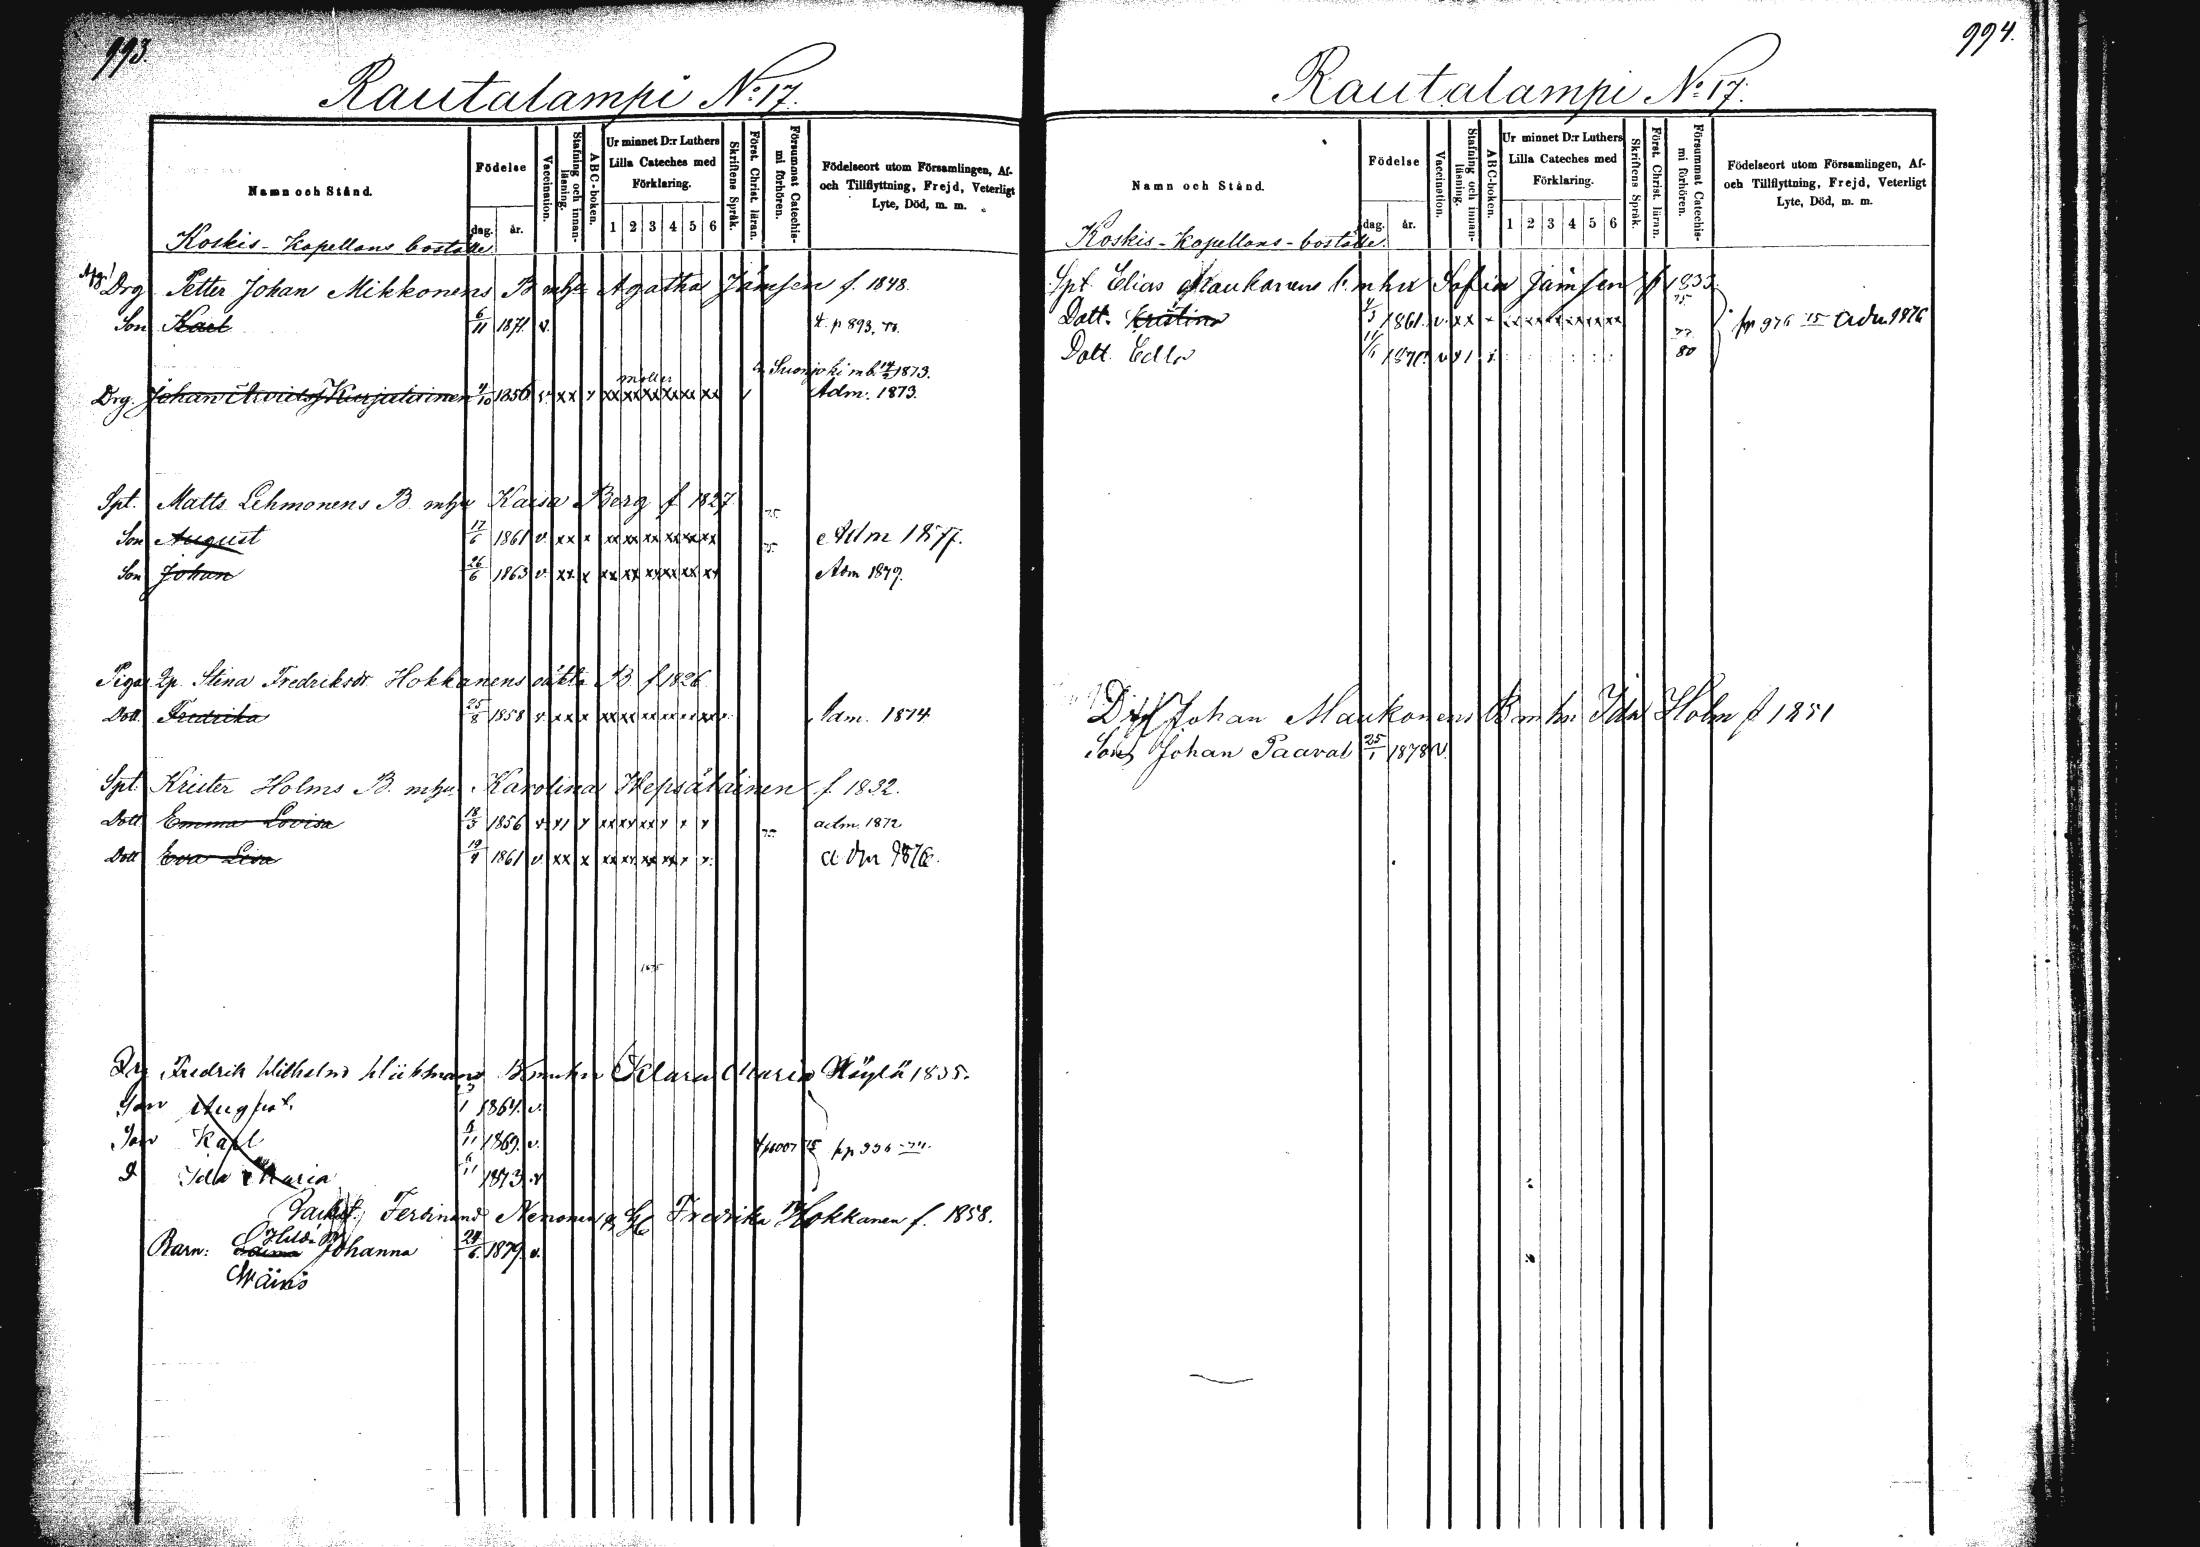 993.
Rautalampi No 17.
Namn och Stånd.
Födelse
dag.
år.
Vaccination.
Stafning och innanläsning.
ABC-boken.
Ur minnet D:r Luthers
Lilla Cateches med
Förklaring.
1 2 3 4 5 6
Skriftens Språk.
Först. Christ. läran.
Försummat Catechismi förhören.
Födelseort utom Församlingen, Af-
och Tillflyttning, Frejd, Veterligt
Lyte, Död, m. m.
Koskis-Kapellans boställe
Drg Petter Johan Mikkonens B mhu Agatha Jämsen f. 1848.
Son Karl 6/11 1871. v. t. p 893.
Suonjoki
Drg. Johan 4/10 1856 v. xx xx xx xx xx xx xx Adm. 1873.
Spt. Matts Lehmonens B mhu Kaisa Berg f 1827
Son August 17/6 1861 v. xx x xx xx xx xx xx xx Adm 1877.
Son Johan 26/6 1863 v. xx x xx xx xx xx xx xx Adm 1879.
Piga Stina Fredriksdr Hokkanens B f 1826
Dott. Fredrika 25/8 1858 v. xx x xx xx xx xx xx xx Adm. 1874
Spt. Krister Holms B. mhu Karolina Hepsäläinen f. 1832.
Dott Emma Lovisa 18/3 1856 adm. 1872
Dott Eva Lisa 19/4 1861 v. xx x xx xx xx xx x x adm 1876.
Drg Fredrik Wilhelm B mhu Klara Maria Höylä 1835.
Son August. 1864. v.
Son Karl 1869. v.
D Ida Maria 1873 v
Ferdinand Nenonen & Fredrika Hokkanen f. 1858.
Hilda
Barn: Johanna 24/6. 1879. v.
Wäinö
994.
Rautalampi No 17.
Namn och Stånd.
Födelse
dag.
år.
Vaccination.
Stafning och innanläsning.
ABC-boken.
Ur minnet D:r Luthers
Lilla Cateches med
Förklaring.
1 2 3 4 5 6
Skriftens Språk.
Först. Christ. läran.
Försummat Catechismi förhören.
Födelseort utom Församlingen, Af-
och Tillflyttning, Frejd, Veterligt
Lyte, Död, m. m.
Koskis-Kapellans-boställe.
Spt Elias Maukonens b. mhu Sofia Jämsen f 1833
Dott. Kristina 1861. v. xx x xx xx xx xx xx xx 77 fr 976 15 Adm 1876
Dott. Edla 80
Johan Maukonens B mhu Ida Holm f 1851
Son Johan Paaval 25/1 1878 v.